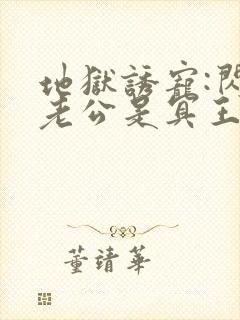 地獄誘寵:閃
老公是冥王
董靖華